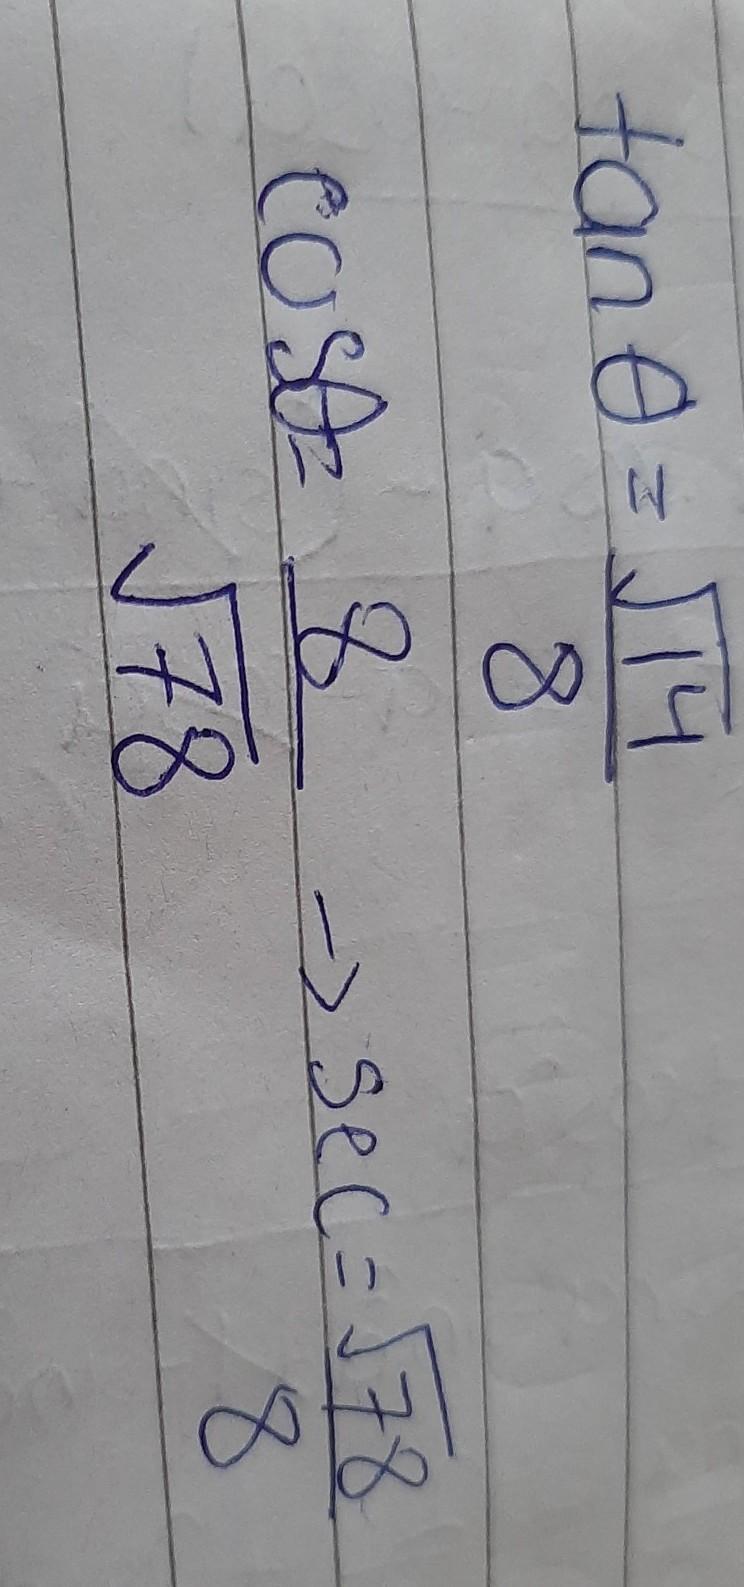 tan θ = √14/8
cosθ = 8/√78 → sec = √78/8